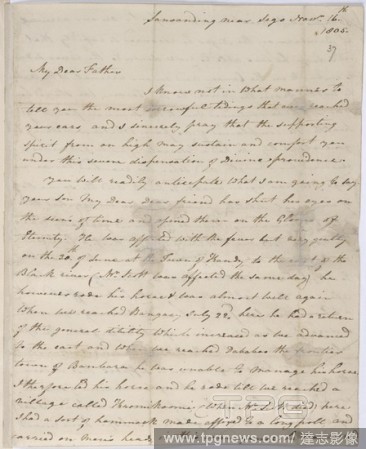 Sansanding near Sego Novr. 16th
1805.
37
My Dear Father
I know not in what manner to
tell you the most sorrowful tidings that ever reached
your ears and I sincerely pray that the supporting
spirit from on high may sustain and comfort you
under this severe dispensation of Divine providence.
You will readily anticipate what I am going to say
your son My dear, dear friend has shut his eyes on
the scenes of time and opend them on the Glories of
Eternity. He was affected with the fever but very
on the 20th of June at the Town of to the east of the
Black river (Mr. Scott was affected the same day) he
however rode his horse & was almost well again
When we reached July 28 here he had a return
of the general debility which increased as we advanced
to the east and when we reached the frontier
town of Bambara he was unable to manage his horse
I therefore led his horse and he rode till we reached a
village called (where Mr. S. died) here
I had a sort of hammock made affixed to a long pole and
carried on mens heads
TPG
www.tpgnews.com / 達志影像